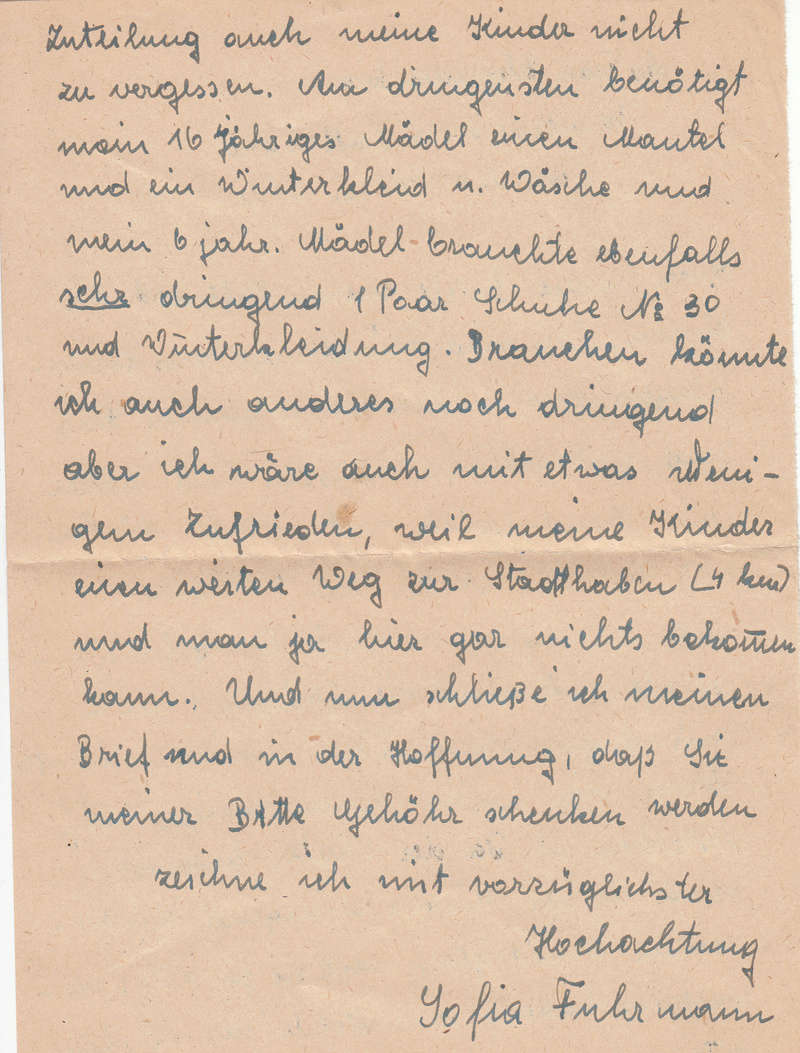 Zuteilung auch meine Kinder nicht
zu vergessen. Am dringensten benötigt
mein 16 jähriges Mädel einen Mantel
und ein Winterkleid u. Wäsche und
mein 6 jahr. Mädel brauchte ebenfalls
sehr dringend 1 Paar Schuhe № 30
und Winterkleidung. Brauchen könnte
ich auch anderes noch dringend
aber ich wäre auch mit etwas Weni-
gem Zufrieden, weil meine Kinder
einen weiten Weg zur Stadt haben (4 km)
und man ja hier gar nichts bekom̅en
kann. Und nun schließe ich meinen
Brief und in der Hoffnung, daß Sie
meiner Bitte Gehöhr schenken werden
zeichne ich mit vorzüglichster
Hochachtung
Sofia Fuhrmann